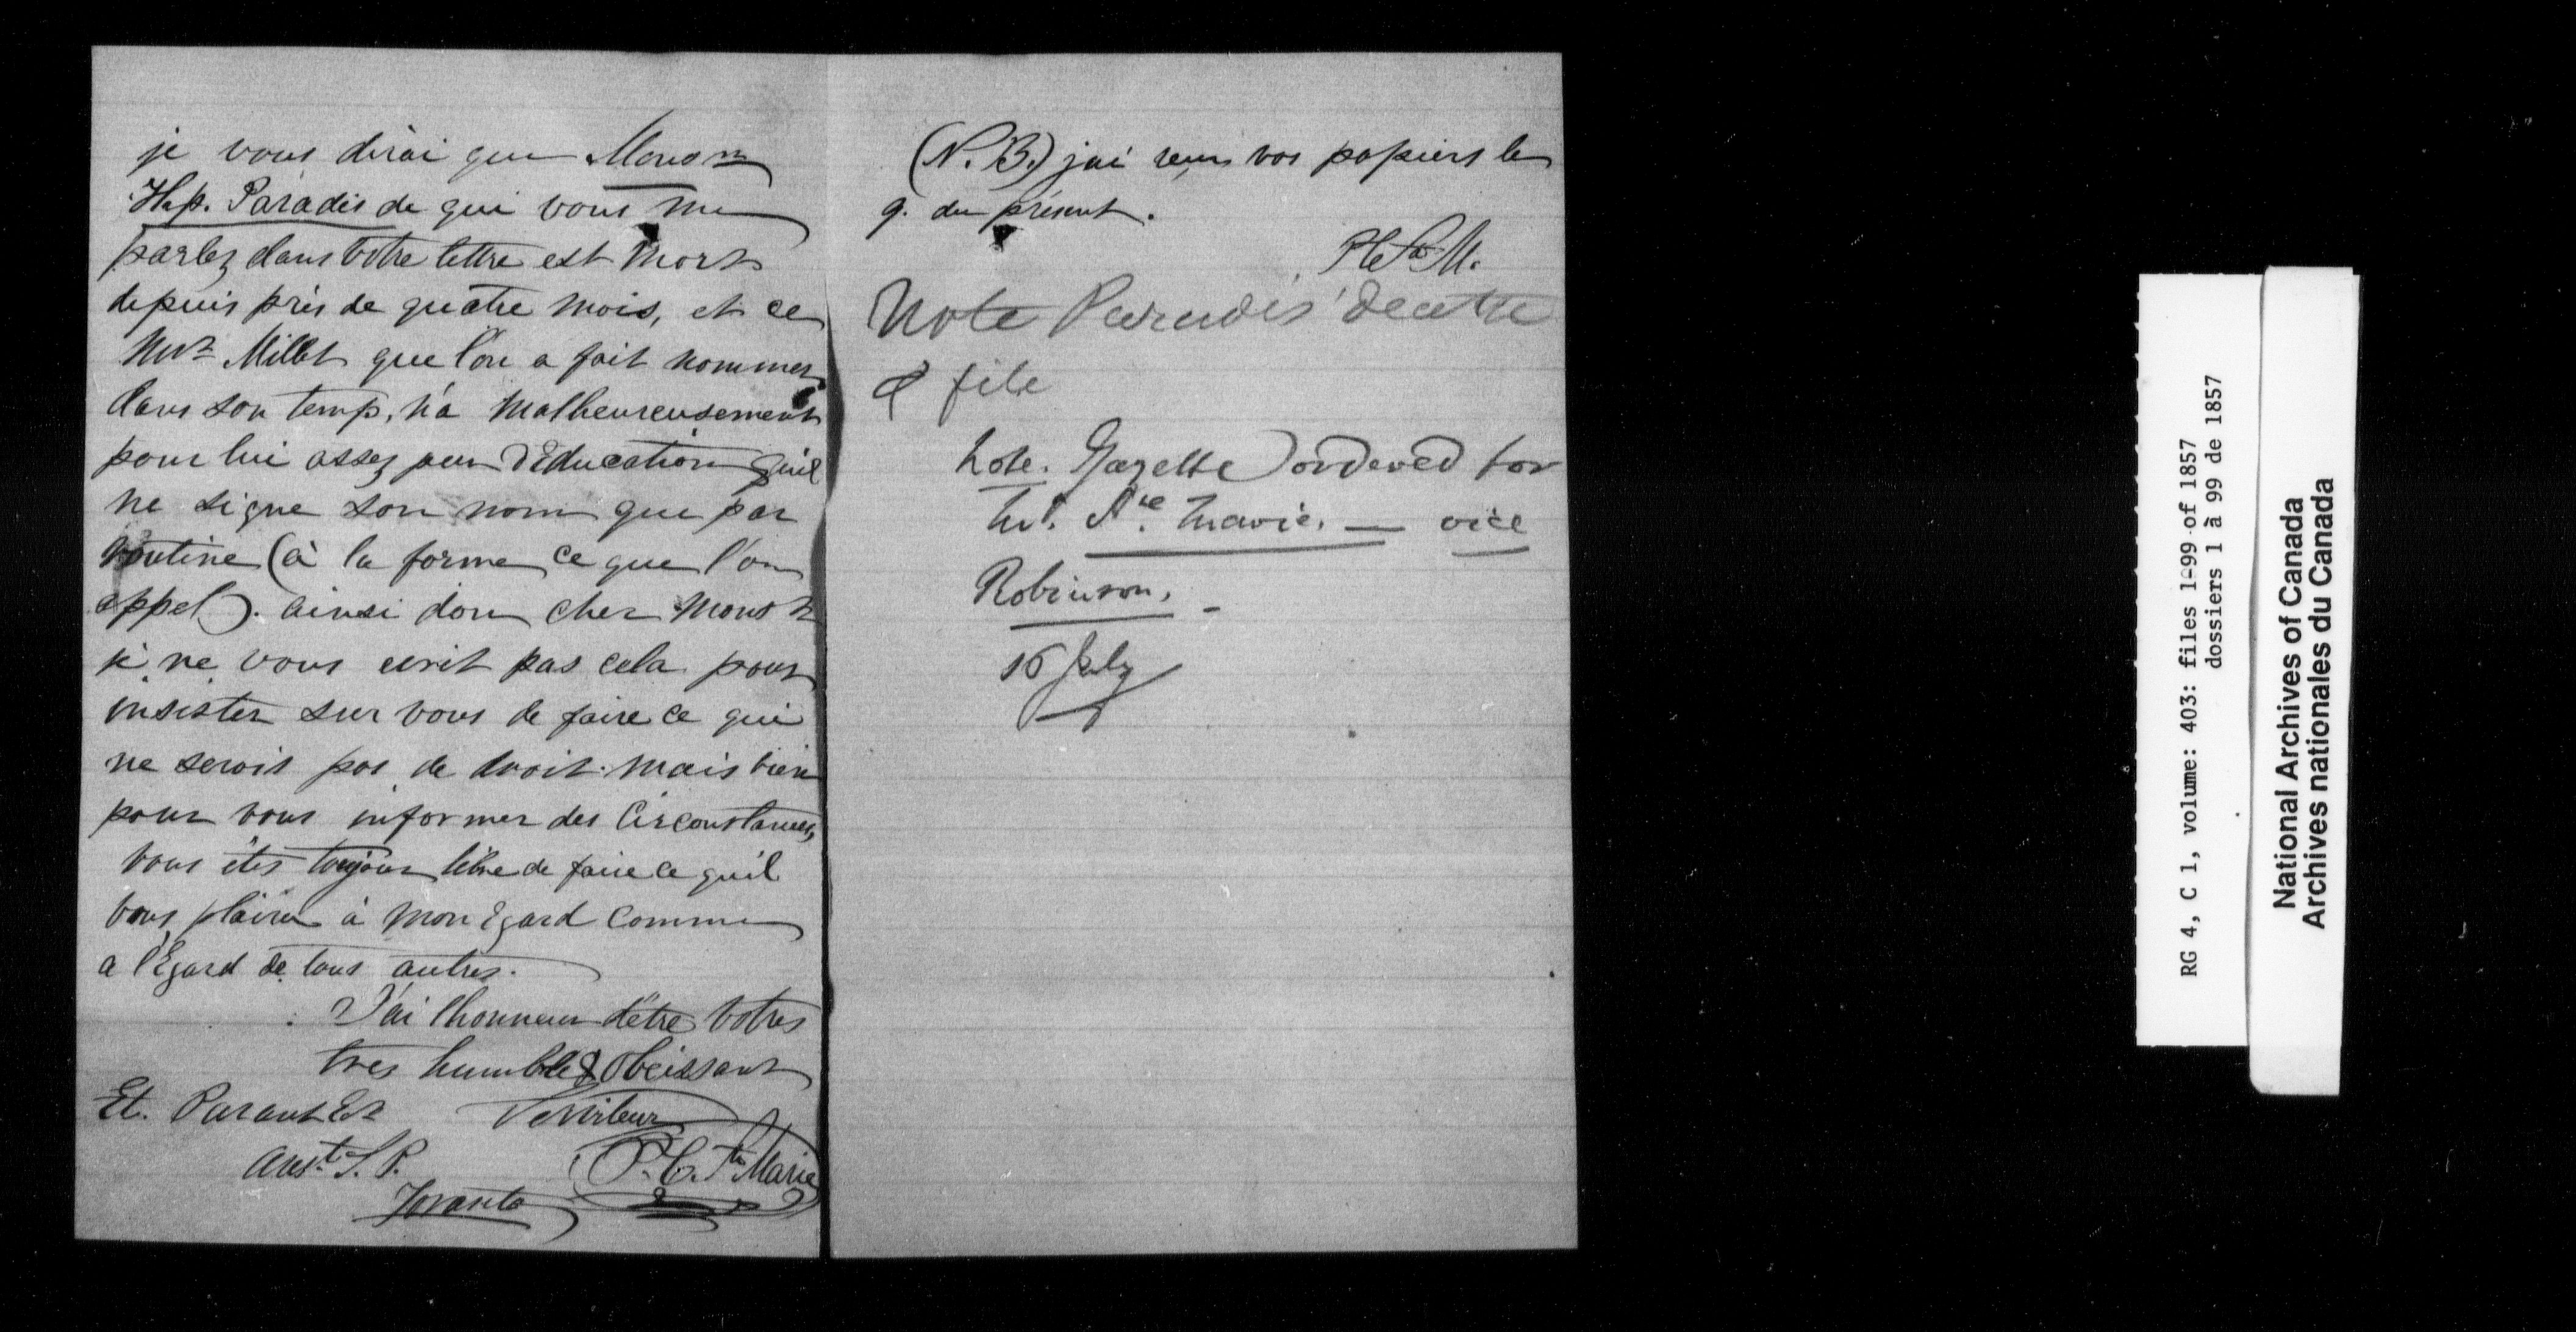 je vous dirai que Monsr
Hyp. Paradis de qui vous me
parlez dans votre lettre est mort
depuis près de quatre mois, et ce
Mr Millet que l'on a fait nommer
dans son temp, n'a malheureusement
pour lui assez peu d'Education qu'il
ne signe son nom que par
routine (à la forme ce que l'on
appel). ainsi don cher Monsr
je ne vous ecrit pas cela pour
insister sur vous de faire ce qui
ne serois pas de droit. mais bien
pour vous informer des Circonstances,
vous êtes toujour libre de faire ce qu'il
vous plaira à mon Egard comme
a l'Egard de tous autres.
J'ai l'honneur d'être votres
tres humble & Obeissant
Et. Parent Er Serviteur
Asst. S. P. P. C. Ste Marie
Toronto
(N. B.) j'ai reçus vos papiers le
9. du présent.
Ste M.
Note Paradis' death
& file
Note. Gazette ordered for
Mr. Ste. Marie. — vice
Robinson. -
16 July
RG 4, C 1, volume: 403: files 1-99 of 1857
dossiers 1 à 99 de 1857
National Archives of Canada
Archives nationales du Canada